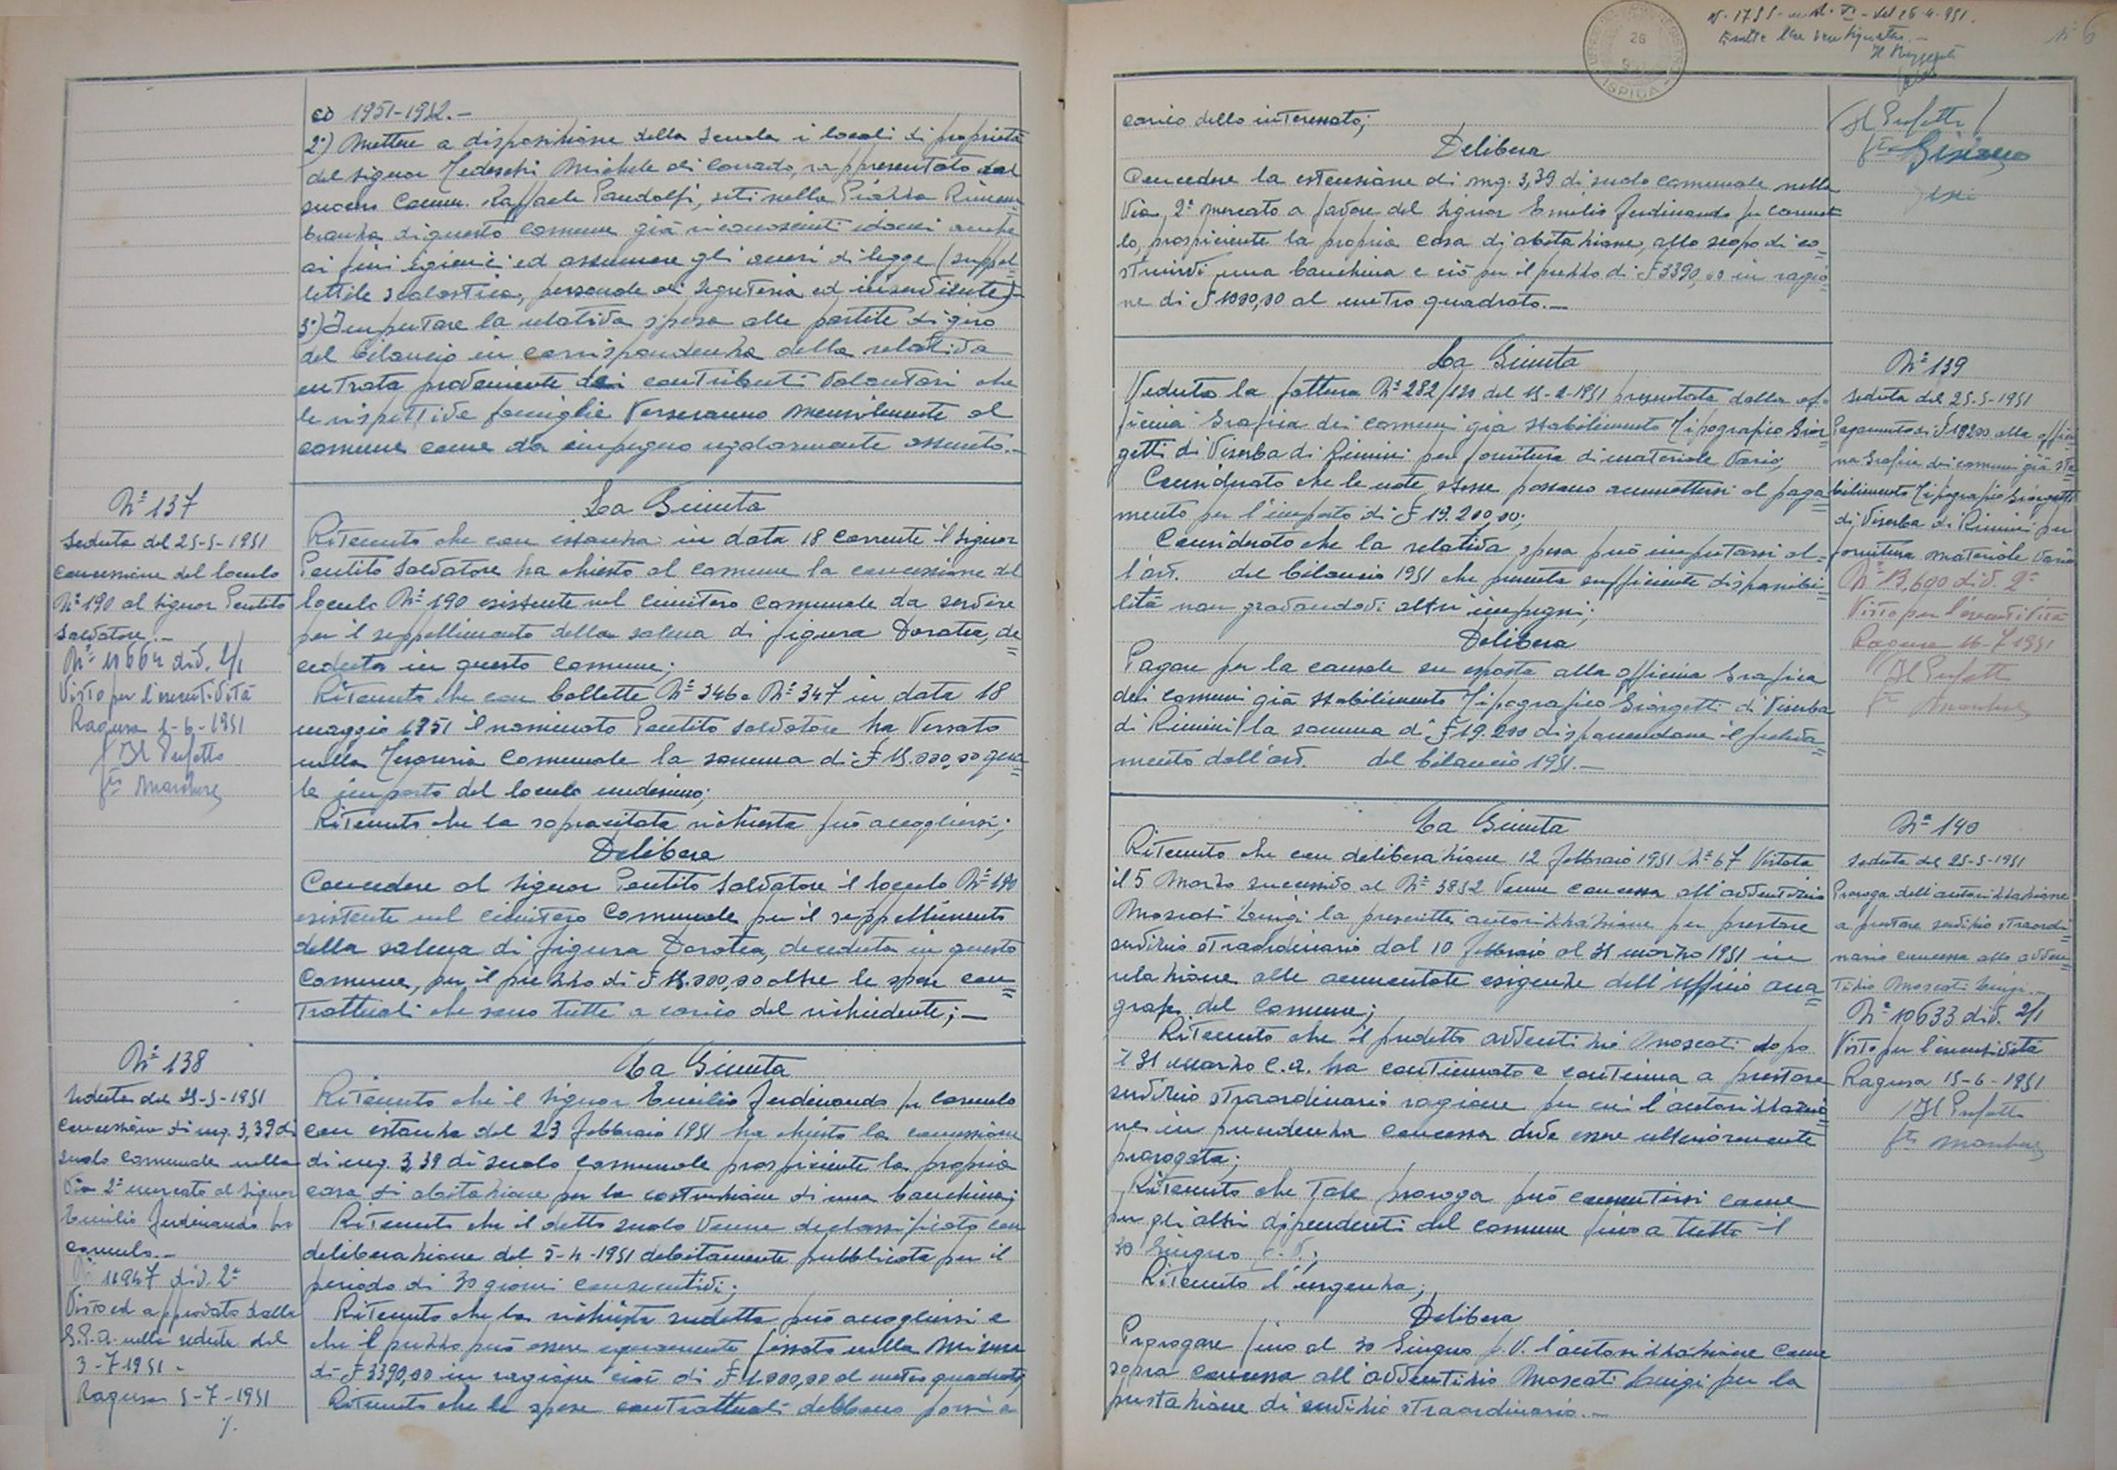 co 1951-1952.-
2°) Mettere a disposizione della Scuola i locali di proprietà
del Signor Tedeschi Michele di Corrado, rappresentato dal
suocero Comm. Raffaele Pandolfi, siti nella Piazza Rimem=
branza di questo Comune già riconosciuti idonei anche
ai fini igienici ed assumere gli oneri di legge (suppel=
lettile scolastica, personale di segreteria ed inserviente)=
3°) Imputare la relativa spesa alle partite di giro
del bilancio in corrispondenza della relativa
entrata proveniente dai contributi volontari che
le rispettive famiglie verseranno mensilmente al
comune come da impegno regolarmente assunto.-
N° 137
Seduta del 25-5-1951
Concessione del loculo
N° 190 al Signor Pentito
Salvatore.-
N° 10664 div. 2/1
Visto per l'esecutività
Ragusa 1-6-1951
Il Prefetto
La Giunta
Ritenuto che con istanza in data 18 corrente il Signor
Pentito Salvatore ha chiesto al comune la concessione del
loculo N° 190 esistente nel cimitero comunale da servire
per il seppellimento della salma di Figura Dorotea, de=
ceduta in questo comune;
Ritenuto che con bollette N° 346 e N° 347 in data 18
maggio 1951 il nominato Pentito Salvatore ha versato
nella Tesoreria Comunale la somma di £ 15.000,00 qua=
le importo del loculo medesimo;
Ritenuto che la sopracitata richiesta può accogliersi;
Delibera
Concedere al Signor Pentito Salvatore il loculo N° 190
esistente nel cimitero Comunale per il seppellimento
della salma di Figura Dorotea, deceduta in questo
Comune, per il prezzo di £ 15.000,00 oltre le spese con=
trattuali che sono tutte a carico del richiedente;-
N° 138
Seduta del 25-5-1951
Concessione di mq. 3,39 di
suolo comunale nella
Via 2° mercato al Signor
Emilio Ferdinando fu
Carmelo.-
div. 2°
Visto ed approvato dalla
G.P.A. nella seduta del
3-7-1951-
Ragusa 5-7-1951
./.
La Giunta
Ritenuto che il Signor Emilio Ferdinando fu Carmelo
con istanza del 23 febbraio 1951 ha chiesto la concessione
di mq. 3,39 di suolo comunale prospiciente la propria
casa di abitazione per la costruzione di una banchina;
Ritenuto che il detto suolo venne declassificato con
deliberazione del 5-4-1951 debitamente pubblicata per il
periodo di 30 giorni consecutivi;
Ritenuto che la richiesta suddetta può accogliersi e
che il prezzo può essere equamente fissato nella misura
di £ 3390,00 in ragione cioè di £ 1.000,00 al metro quadrato;
Ritenuto che le spese contrattuali debbano porsi a
N. 1755 del 26-4-951.
Esatte lire
ISPICA
26
N° 6
carico dello interessato;
Delibera
Concedere la estensione di mq. 3,39 di suolo comunale nella
Via 2° mercato a favore del Signor Emilio Ferdinando fu Carme=
lo, prospiciente la propria casa di abitazione, allo scopo di co=
struirvi una banchina e ciò per il prezzo di £ 3390,00 in ragio=
ne di £ 1000,00 al metro quadrato.-
Il Prefetto
La Giunta
Veduta la fattura N° 282/120 del 15-2-1951 presentata dalla of=
ficina Grafica dei comuni già stabilimento Tipografico Gior=
getti di Viserba di Rimini per fornitura di materiale vario;
Considerato che le note stesse possono ammettersi al paga=
mento per l'importo di £ 19.200,00;
Considerato che la relativa spesa può imputarsi al=
l'art. del bilancio 1951 che presenta sufficiente disponibi=
lità non gravandovi altri impegni;
Delibera
Pagare per la causale su esposta alla officina Grafica
dei comuni già stabilimento Tipografico Giorgetti di Viserba
di Rimini la somma di £ 19.200 disponendone il preleva=
mento dall'art. del bilancio 1951.-
N° 139
Seduta del 25-5-1951
Pagamento di £ 19200 alla offici=
na Grafica dei comuni già sta=
bilimento Tipografico Giorgetti
di Viserba di Rimini per
fornitura materiale vario
N° 13,690 div. 2°
Visto per l'esecutività
Ragusa 16-7-1951
Il Prefetto
La Giunta
Ritenuto che con deliberazione 12 febbraio 1951 N° 67 vistata
il 5 Marzo successivo al N° 3852 venne concessa all'avventizio
Moscati Luigi la prescritta autorizzazione per prestare
servizio straordinario dal 10 febbraio al 31 marzo 1951 in
relazione alle aumentate esigenze dell'ufficio ana=
grafe del comune;
Ritenuto che il predetto avventizio Moscati dopo
il 31 marzo c.a. ha continuato e continua a prestare
servizio straordinario ragione per cui l'autorizzazio=
ne in precedenza concessa deve essere ulteriormente
prorogata;
Ritenuto che tale proroga può consentirsi come
per gli altri dipendenti del comune fino a tutto il
30 Giugno p.v.;
Ritenuto l'urgenza;
Delibera
Prorogare fino al 30 Giugno p.v. l'autorizzazione come
sopra concessa all'avventizio Moscati Luigi per la
prestazione di servizio straordinario.-
N° 140
Seduta del 25-5-1951
Proroga dell'autorizzazione
a prestare servizio straordi=
nario concessa allo avven=
tizio Moscati Luigi.-
N° 10633 div. 2/1
Visto per l'esecutività
Ragusa 15-6-1951
Il Prefetto